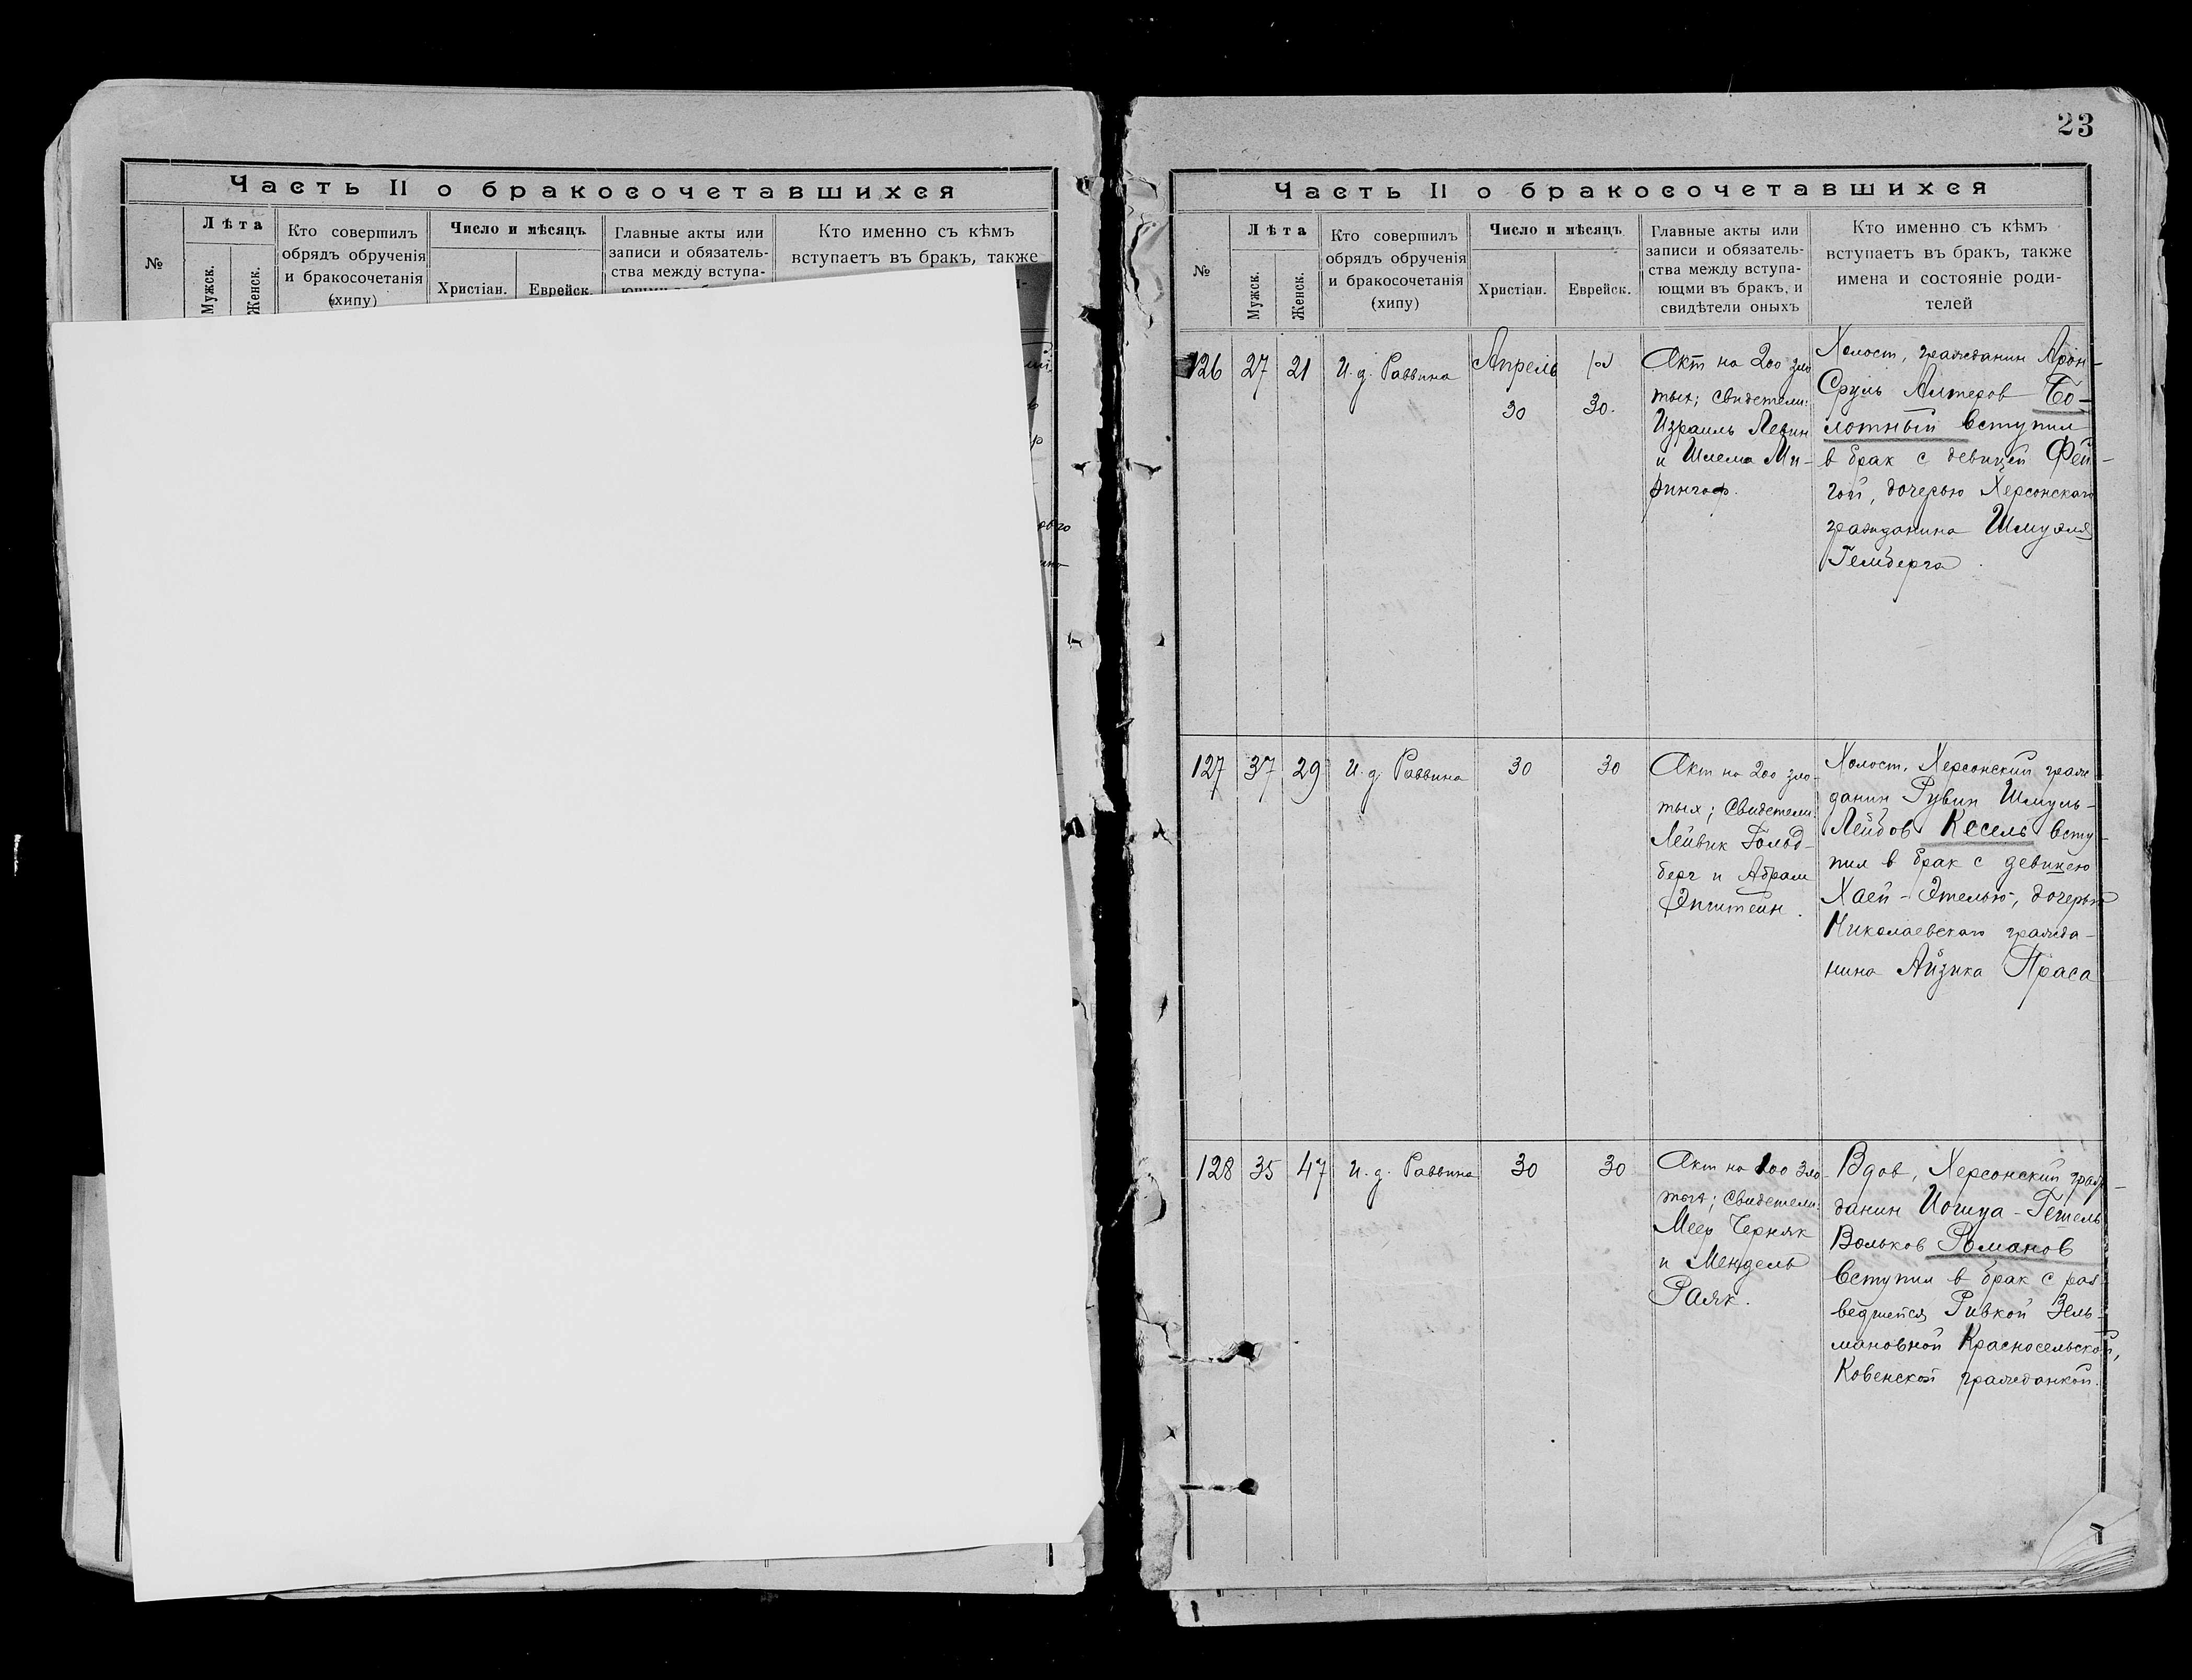 Часть II о бракосочетавшихся
№
Лѣта
Мужск.
Женск.
Кто совершилъ
обрядъ обрученія
и бракосочетанія
(хипу)
Число и мѣсяцъ
Христіан.
Еврейск.
Главные акты или
записи и обязатель-
ства между вступа-
Кто именно съ кѣмъ
вступаетъ въ бракъ, также
23
Часть II о бракосочетавшихся
№
Лѣта
Мужск.
Женск.
Кто совершилъ
обрядъ обрученія
и бракосочетанія
(хипу)
Число и мѣсяцъ
Христіан.
Еврейск.
Главные акты или
записи и обязатель-
ства между вступа-
ющми въ бракъ, и
свидѣтели оныхъ
Кто именно съ кѣмъ
вступаетъ въ бракъ, также
имена и состояніе роди-
телей
126
27
21
И. д. Раввина
Апрель
30
30.
Акт на 200 зло
тых; свидетели:
Израиль Левин
и Шлема Ми-
рингоф.
Холост, гражданин Арон-
Сруль Алтеров Бо-
лотный вступил
в брак с девицей Фей-
гой, дочерью Херсонскаго
гражданина Шмуэля
Гельберга.
127
37
29
И. д. Раввина
30
30
Акт на 200 зло-
тых; Свидетели:
Лейвик Гольд-
берг и Абрам
Эпштейн.
Холост, Херсонский граж
данин Рувин Шмуль-
Лейбов Кесель всту-
пил в брак с девицею
Хаей-Этелью, дочерью
Николаевскаго гражда-
нина Айзика Праса
128
35
47
И. д. Раввина
30
30
Акт на 100 зло-
тых; Свидетели:
Меер Черняк
и Мендель
Раяк.
Вдов, Херсонский граж-
данин Иошуа-Гешель
Вольков Романов
вступил в брак с раз-
ведшейся Ривкой Зель-
мановной Красносельской,
Ковенской гражданкой.